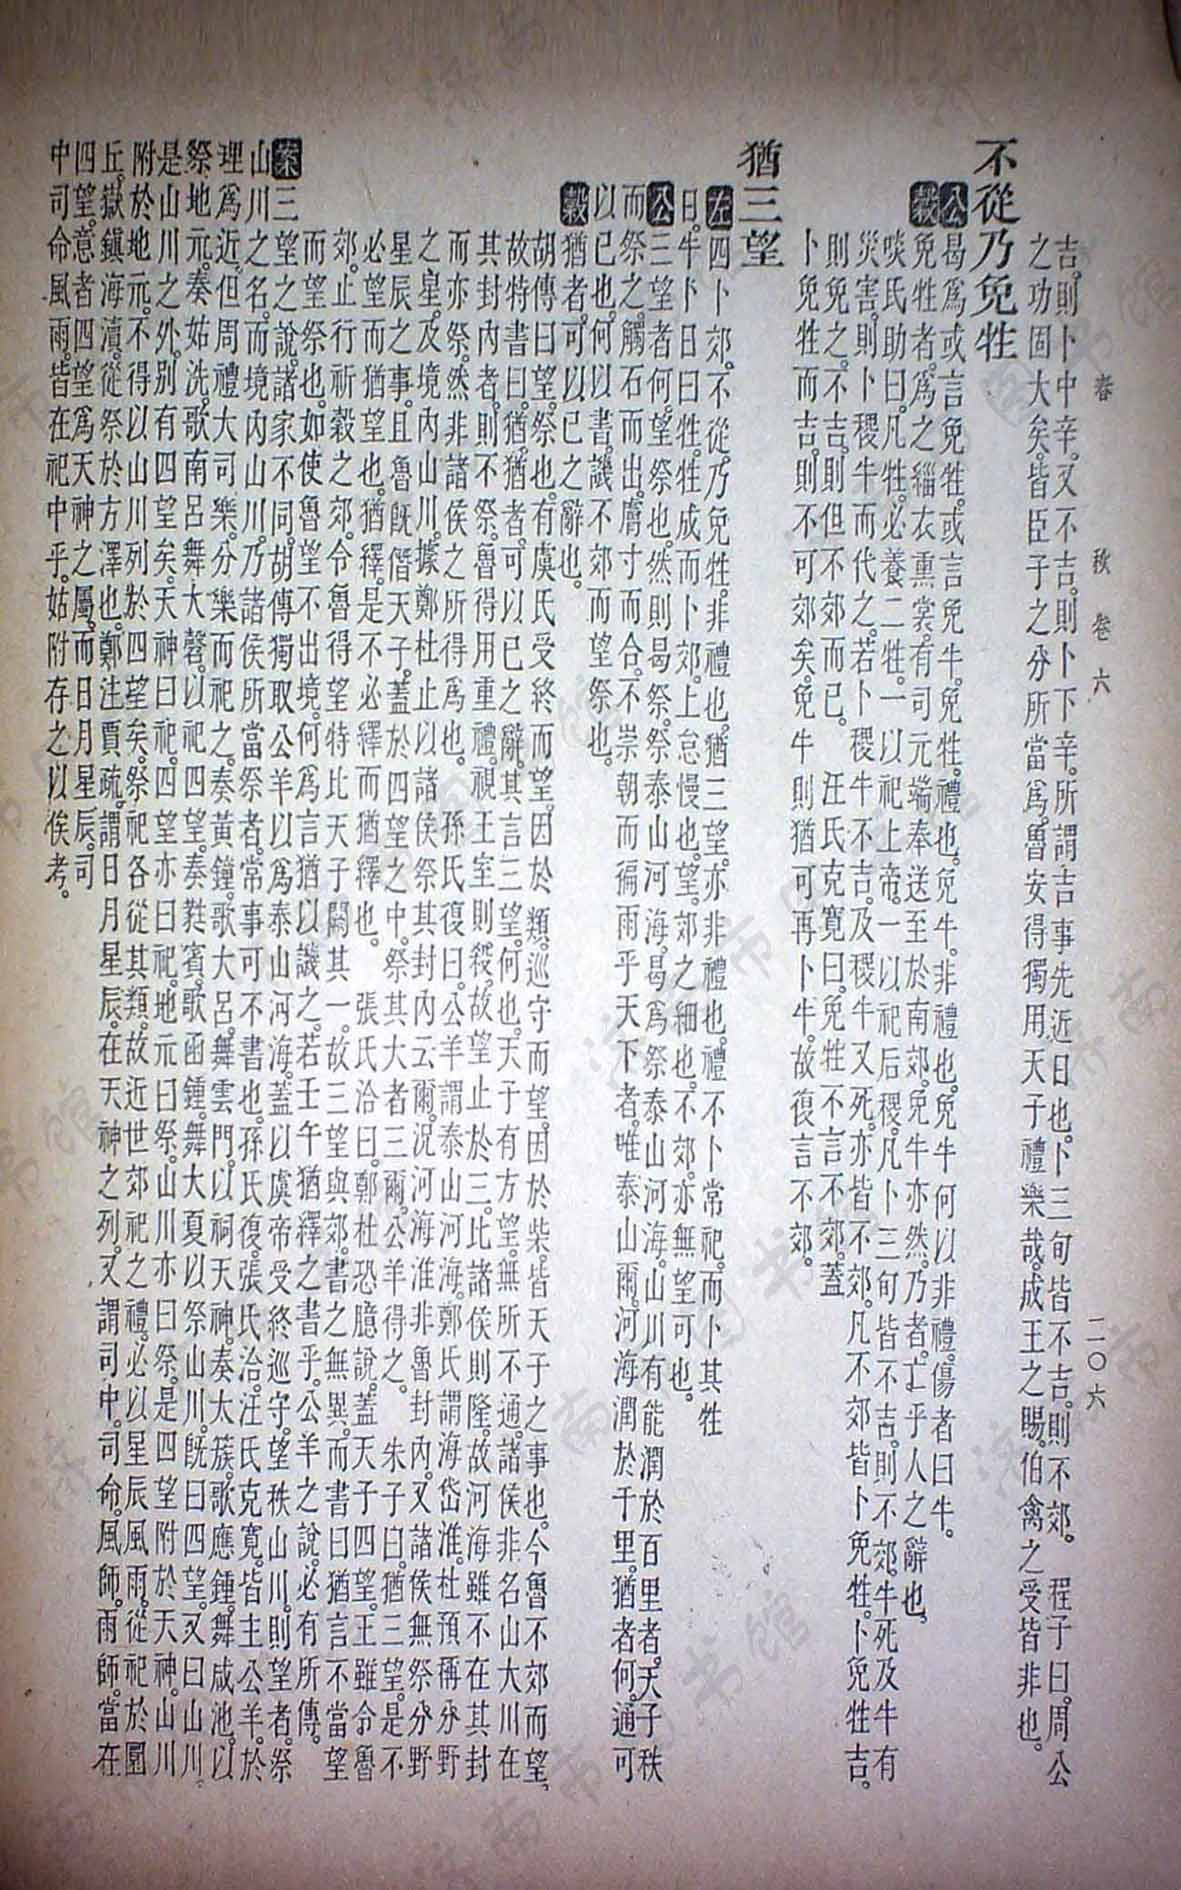 春　秋　卷六　二〇六
吉。則卜中辛。又不吉。則卜下辛。所謂吉事先近日也。卜三旬皆不吉。則不郊。　程子曰。周公
之功固大矣。皆臣子之分所當爲。魯安得獨用天子禮樂哉。成王之賜。伯禽之受皆非也。
不從乃免牲
公曷爲或言免牲。或言免牛。免牲。禮也。免牛。非禮也。免牛何以非禮。傷者曰牛。
穀免牲者。爲之緇衣熏裳。有司元端奉送至於南郊。免牛亦然。乃者。亡乎人之辭也。
啖氏助曰。凡牲。必養二牲。一以祀上帝。一以祀后稷。凡卜三旬皆不吉。則不郊。牛死及牛有
災害。則卜稷牛而代之。若卜稷牛不吉。及稷牛又死。亦皆不郊。凡不郊皆卜免牲。卜免牲吉。
則免之。不吉。則但不郊而已。　汪氏克寬曰。免牲不言不郊。蓋
卜免牲而吉。則不可郊矣。免牛則猶可再卜牛。故復言不郊。
猶三望
左四卜郊。不從。乃免牲。非禮也。猶三望。亦非禮也。禮不卜常祀。而卜其牲
日。牛卜日曰牲。牲成而卜郊。上怠慢也。望。郊之細也。不郊。亦無望可也。
公三望者何。望祭也。然則曷祭。祭泰山河海。曷爲祭泰山河海。山川有能潤於百里者。天子秩
而祭之。觸石而出。膚寸而合。不崇朝而徧雨乎天下者。唯泰山爾。河海潤於千里。猶者何。通可
以已也。何以書。譏不郊而望祭也。
穀猶者。可以已之辭也。
胡傳曰。望。祭也。有虞氏受終而望。因於類。巡守而望。因於柴。皆天子之事也。今魯不郊而望。
故特書曰。猶。猶者。可以已之辭。其言三望何也。天子有方望。無所不通。諸侯非名山大川在
其封內者。則不祭。魯得用重禮。視王室則殺。故望止於三。比諸侯則隆。故河海雖不在其封
而亦祭。然非諸侯之所得爲也。　孫氏復曰。公羊謂泰山河海。鄭氏謂海岱淮。杜預稱分野
之星。及境內山川。據鄭杜止以諸侯祭其封內云爾。況河海淮非魯封內。又諸侯無祭分野
星辰之事。且魯旣僭天子。蓋於四望之中。祭其大者三爾。公羊得之。　朱子曰。猶三望。是不
必望而猶望也。猶繹。是不必繹而猶繹也。　張氏洽曰。鄭杜恐臆說。蓋天子四望。王雖令魯
郊。止行祈穀之郊。令魯得望特比天子闕其一。故三望與郊書之無異。而書曰猶言不當望
而望祭也。如使魯望不出境。何爲言猶以譏之。若壬午猶繹之書乎。公羊之說。必有所傳。
案三望之說。諸家不同。胡傳獨取公羊以爲泰山河海。蓋以虞帝受終巡守。望秩山川。則望者。祭
山川之名。而境內山川。乃諸侯所當祭者。常事可不書也。孫氏復。張氏洽。汪氏克寬。皆主公羊。於
理爲近。但周禮大司樂。分樂而祀之。奏黃鐘。歌大呂。舞雲門。以祠天神。奏太蔟。歌應鍾。舞咸池。以
祭地元。奏姑洗。歌南呂。舞大磬。以祀四望。奏蕤賓。歌函鍾。舞大夏。以祭山川。旣曰四望。又曰山川。
是山川之外。別有四望矣。天神曰祀。四望亦曰祀。地元曰祭。山川亦曰祭。是四望附於天神。山川
附於地元。不得以山川列於四望矣。祭祀各從其類。故近世郊祀之禮。必以星辰風雨。從祀於圜
丘。嶽鎮海瀆。從祭於方澤也。鄭注賈疏。謂日月星辰。在天神之列。又謂司中。司命。風師。雨師。當在
四望。意者四望爲天神之屬。而日月星辰。司
中司命風雨。皆在祀中乎。姑附存之以俟考。